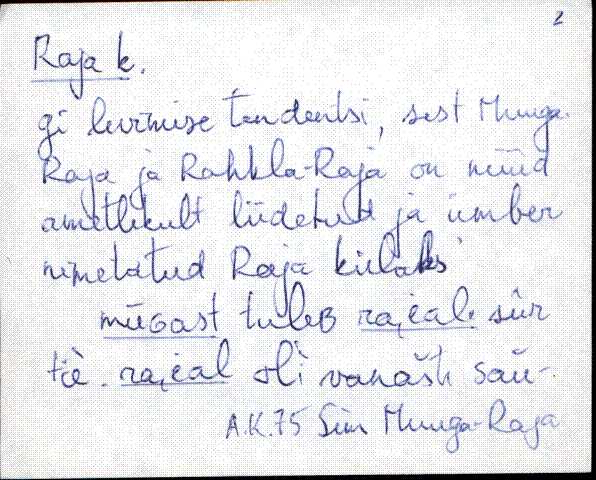 2
Raja k.
gi levimise tendentsi, sest Munga-
Raja ja Rahkla-Raja on nüüd
ametlikult liidetud ja ümber
nimetatud Raja külaks
mùGast tuleB
tiè. oli vanašti
A.K.75 Munga-Raja